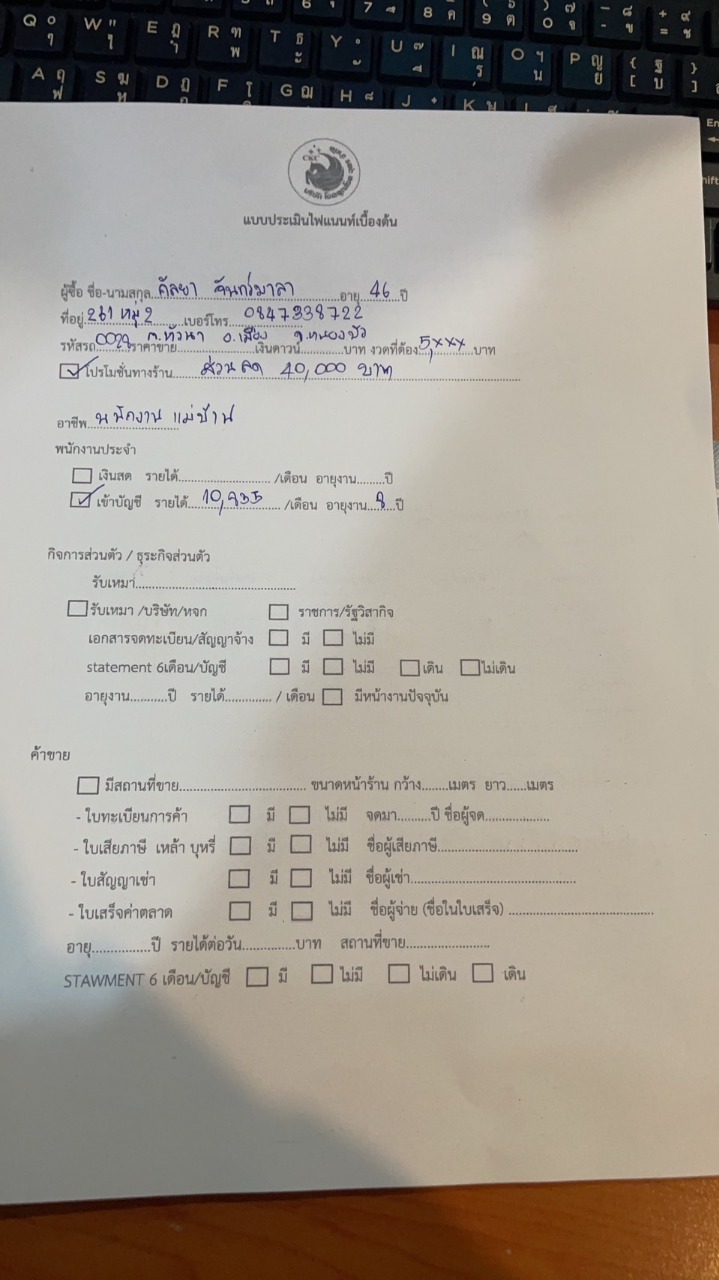 CKC
แบบประเมินไฟแนนท์เบื้องต้น
ผู้ซื้อ ชื่อ-นามสกุล กัลยา จันทร์มาลา อายุ 46 ปี
ที่อยู่ 261 หมู่ 2 เบอร์โทร 0847338722
ต.หัวนา อ.เมือง จ.หนองบัว
รหัสรถ 0029 ราคาขาย............เงินดาวน์............บาท งวดที่ต้อง 5,xxx บาท
โปรโมชั่นทางร้าน ส่วนลด 40,000 บาท
อาชีพ พนักงาน แม่บ้าน
พนักงานประจำ
เงินสด รายได้............/เดือน อายุงาน.........ปี
เข้าบัญชี รายได้ 10,855 /เดือน อายุงาน 8 ปี
กิจการส่วนตัว / ธุระกิจส่วนตัว
รับเหมา............
รับเหมา /บริษัท/หจก ราชการ/รัฐวิสากิจ
เอกสารจดทะเบียน/สัญญาจ้าง มี ไม่มี
statement 6เดือน/บัญชี มี ไม่มี เดิน ไม่เดิน
อายุงาน...........ปี รายได้............. / เดือน มีหน้างานปัจจุบัน
ค้าขาย
มีสถานที่ขาย............ ขนาดหน้าร้าน กว้าง........เมตร ยาว......เมตร
- ใบทะเบียนการค้า มี ไม่มี จดมา..........ปี ชื่อผู้จด............
- ใบเสียภาษี เหล้า บุหรี่ มี ไม่มี ชื่อผู้เสียภาษี............
- ใบสัญญาเช่า มี ไม่มี ชื่อผู้เช่า............
- ใบเสร็จค่าตลาด มี ไม่มี ชื่อผู้จ่าย (ชื่อในใบเสร็จ) ............
อายุ..............ปี รายได้ต่อวัน.............บาท สถานที่ขาย............
STAWMENT 6 เดือน/บัญชี มี ไม่มี ไม่เดิน เดิน